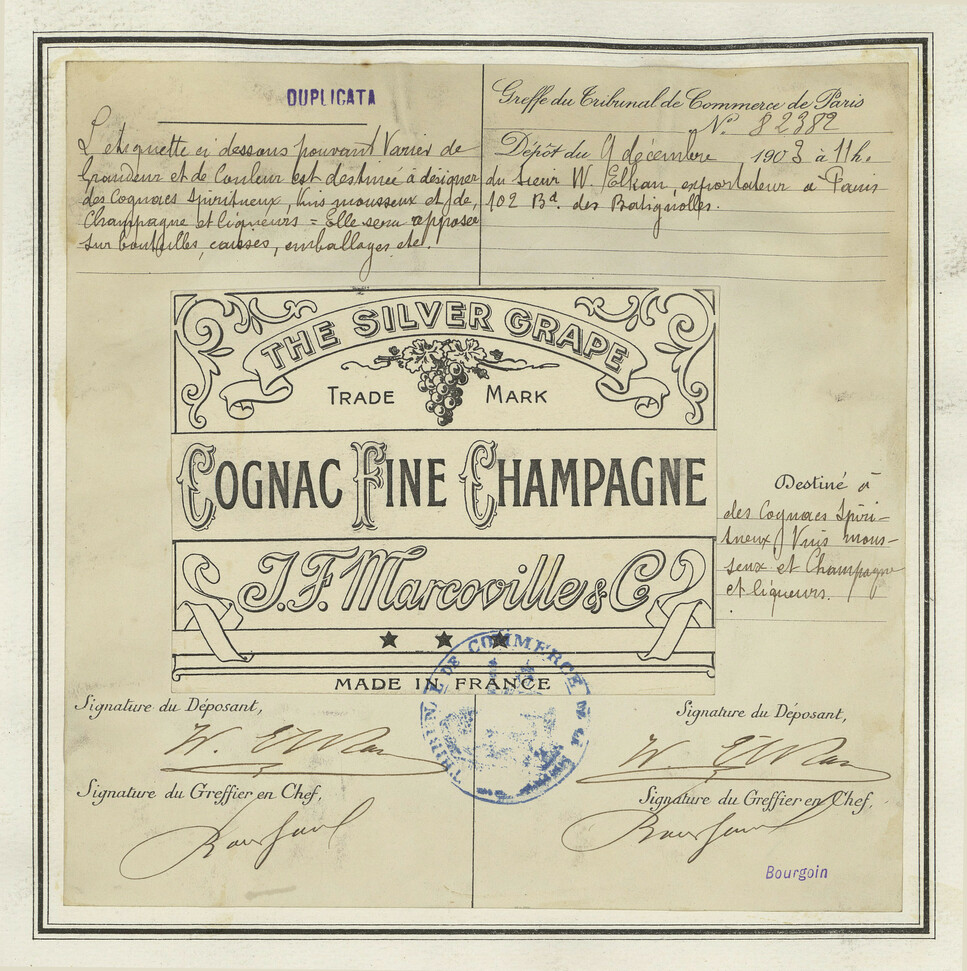 DUPLICATA
L'étiquette ci dessous pouvant Varier de
Grandeur et de Couleur est destinée à désigner
des Cognacs Spiritueux, Vins mousseux et de
Champagne et liqueurs = Elle sera apposée
sur bouteilles, caisses, emballages etc.
Greffe du Tribunal de Commerce de Paris
N° 82382
Dépôt du 9 décembre 1903 à 11h.
du Sieur W. Elkan, exportateur à Paris
102 Bd. des Batignolles.
THE SILVER GRAPE
TRADE MARK
COGNAC FINE CHAMPAGNE
J.F. Marcoville & Co
MADE IN FRANCE
Destiné à
des Cognacs Spiri-
tueux, Vins mous-
seux et Champagne
et liqueurs.
TRIBUNAL DE COMMERCE
Signature du Déposant,
W. Elkan
Signature du Greffier en Chef,
Signature du Déposant,
W. Elkan
Signature du Greffier en Chef,
Bourgoin